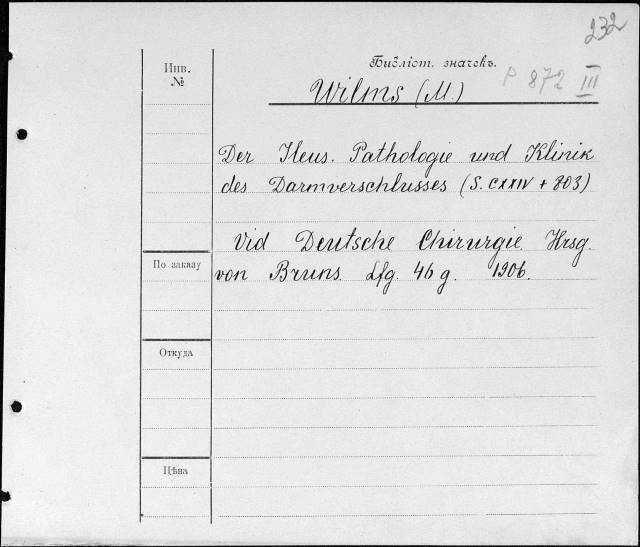 232
Инв. №
Библіот. значекъ.
P 872 III
Wilms (M.)
Der Ileus. Pathologie und Klinik
des Darmverschlusses (S. CXXIV + 803)
Vid Deutsche Chirurgie. Hrsg.
По заказу
von Bruns. Lfg. 46 g. 1906.
Откуда
Цѣна